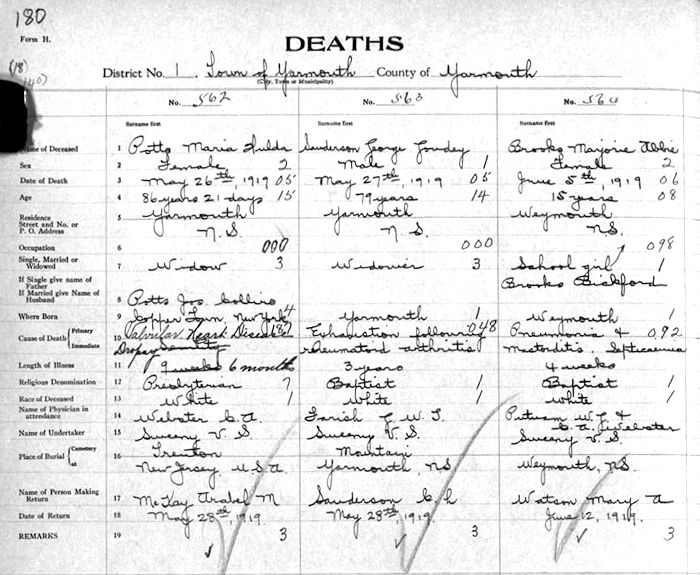 180
Form H.
DEATHS
(18)
District No. 1. Town of Yarmouth County of Yarmouth
(City, Town or Municipality)
No. 562 No. 563 No. 564
Surname first Surname first Surname first
Name of Deceased 1 Potts Maria Hulda Sanderson George Goudey Brooks Marjorie Abbie
Sex 2 Female 2 Male 1 Female 2
Date of Death 3 May 26th, 1919 05 May 27th, 1919 05 June 5th, 1919 06
Age 4 86 years 21 days 15 79 years 14 15 years 08
Residence 5 Yarmouth Yarmouth Weymouth
Street and No. or
P. O. Address N.S. N.S. N.S.
Occupation 6 000 000 098
Single, Married or
Widowed 7 Widow 3 Widower 3 School girl 1
If Single give name of
Father Brooks Bickford
If Married give Name of
Husband 8 Potts Jos. Collins
Where Born 9 Copper Town, New York 4 Yarmouth 1 Weymouth 1
Cause of Death Primary 10 Valvular Heart Disease 187 Exhaustion following 048 Pneumonia & 092
Immediate Dropsy Senility rheumatoid arthritis Mastoiditis. Septicaemia
Length of Illness 11 9 weeks 6 months 3 years 4 weeks
Religious Denomination 12 Presbyterian 7 Baptist 1 Baptist 1
Race of Deceased 13 White 1 White 1 White 1
Name of Physician in
attendance 14 Webster C. A. Farish G. W. T. Putnam W. F. &
C. A. Webster
Name of Undertaker 15 Sweeny V. S. Sweeny V. S. Sweeny V. S.
Place of Burial Cemetery at 16 Trenton Mountain
New Jersey U.S.A. Yarmouth, N.S. Weymouth, N.S.
Name of Person Making
Return 17 McKay Arabel M Sanderson C. h Watson Mary A
Date of Return 18 May 28th, 1919. May 28th, 1919. June 12, 1919.
REMARKS 19 3 3 3